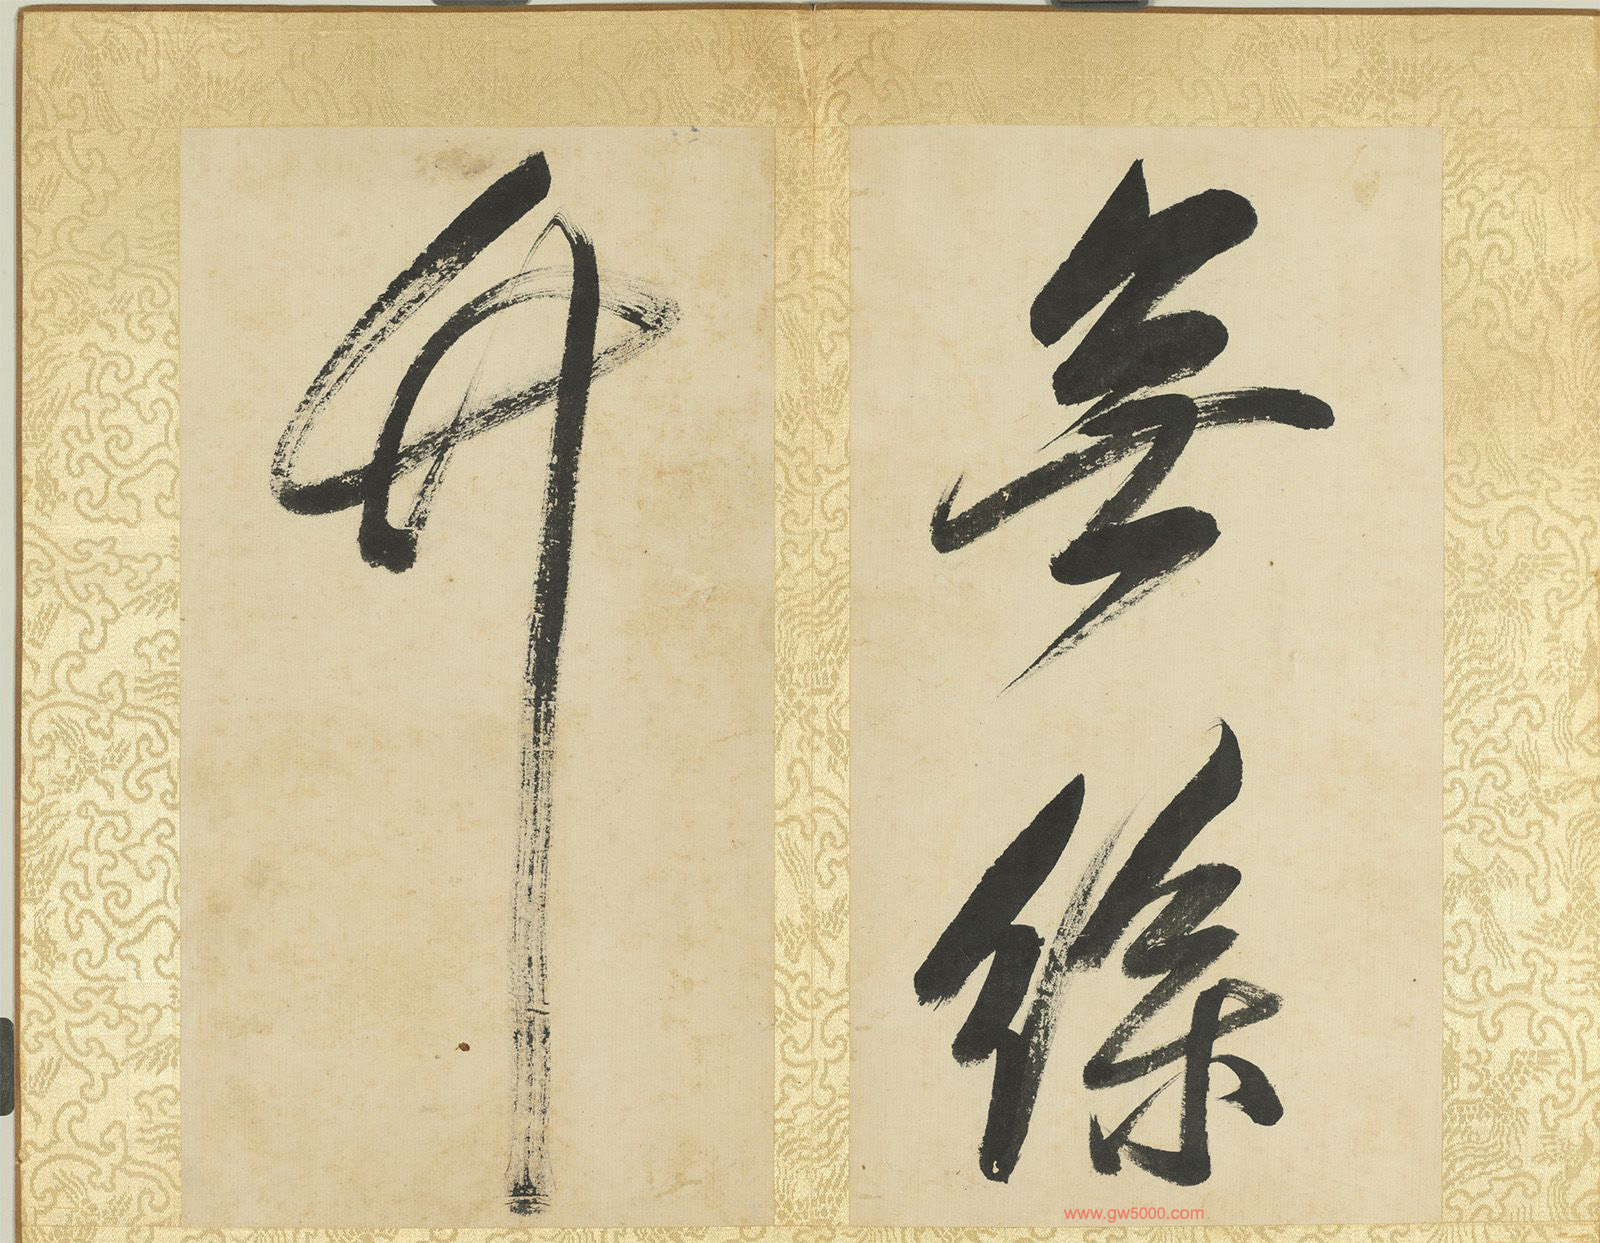 無條
www.gw5000.com